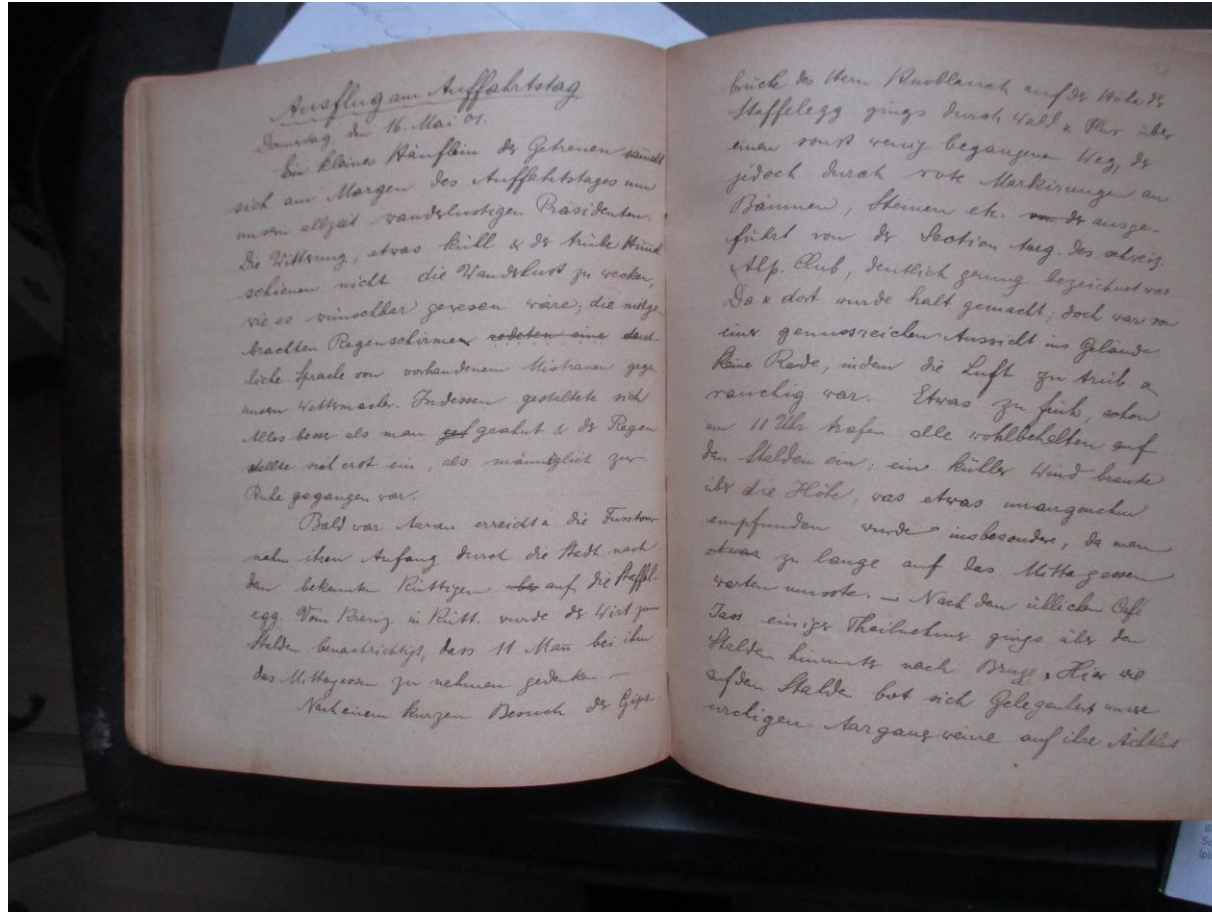 Ausflug am Auffahrtstag
Donnerstag den 16. Mai 01.
Ein kleines Häuflein der Getreuen
sich am Morgen des Auffahrtstages um
unsern allzeit wanderlustigen Präsidenten.
Die Witterung, etwas kühl & der trübe
schienen nicht die Wanderlust zu wecken,
wie es wünschbar gewesen wäre; die mitge-
brachten Regenschirmen redeten eine deut-
liche Sprache von vorhandenem Mistrauen gegen
unsern Wettermacher. Indessen gestaltete sich
Alles besser als man geahnt & der Regen
stellte sich erst ein, als männiglich zur
Ruhe gegangen war.
Bald war Aarau erreicht & die Fusstour
nahm ihren Anfang durch die Stadt nach
dem bekannten Küttigen auf die Staffel-
egg. Vom Kreuz in Kütt. wurde der Wirt zum
Stalden benachrichtigt, dass 11 Man̄ bei ihm
das Mittagessen zu nehmen gedenken. —
Nach einem kurzen Besuch der Gips-
brüche des Herrn Knoblauch auf der Höhe der
Staffelegg gings durch Wald & Flur über
einen sonst wenig begangenen Weg, der
jedoch durch rote Markirungen an
Bäumen, Steinen etc. der ausge-
führt von der Section Aarg. des schweiz.
Alp. Club, deutlich genug bezeichnet war
Da & dort wurde halt gemacht; doch war von
einer genussreichen Aussicht ins Gelände
keine Rede, indem die Luft zu trüb &
rauchig war. Etwas zu früh, schon
um 11 Uhr trafen alle wohlbehalten auf
dem Stalden ein; ein kühler Wind
über die Höhe, was etwas unangenehm
empfunden wurde insbesondere, da man
etwas zu lange auf das Mittagessen
warten musste. — Nach dem üblichen Café
Jass einiger Theilnehmer gings über den
Stalden hinunter nach Brugg. Hier wie
auf dem Stalden bot sich Gelegenheit unsre
urchigen Aargauerweine auf ihre